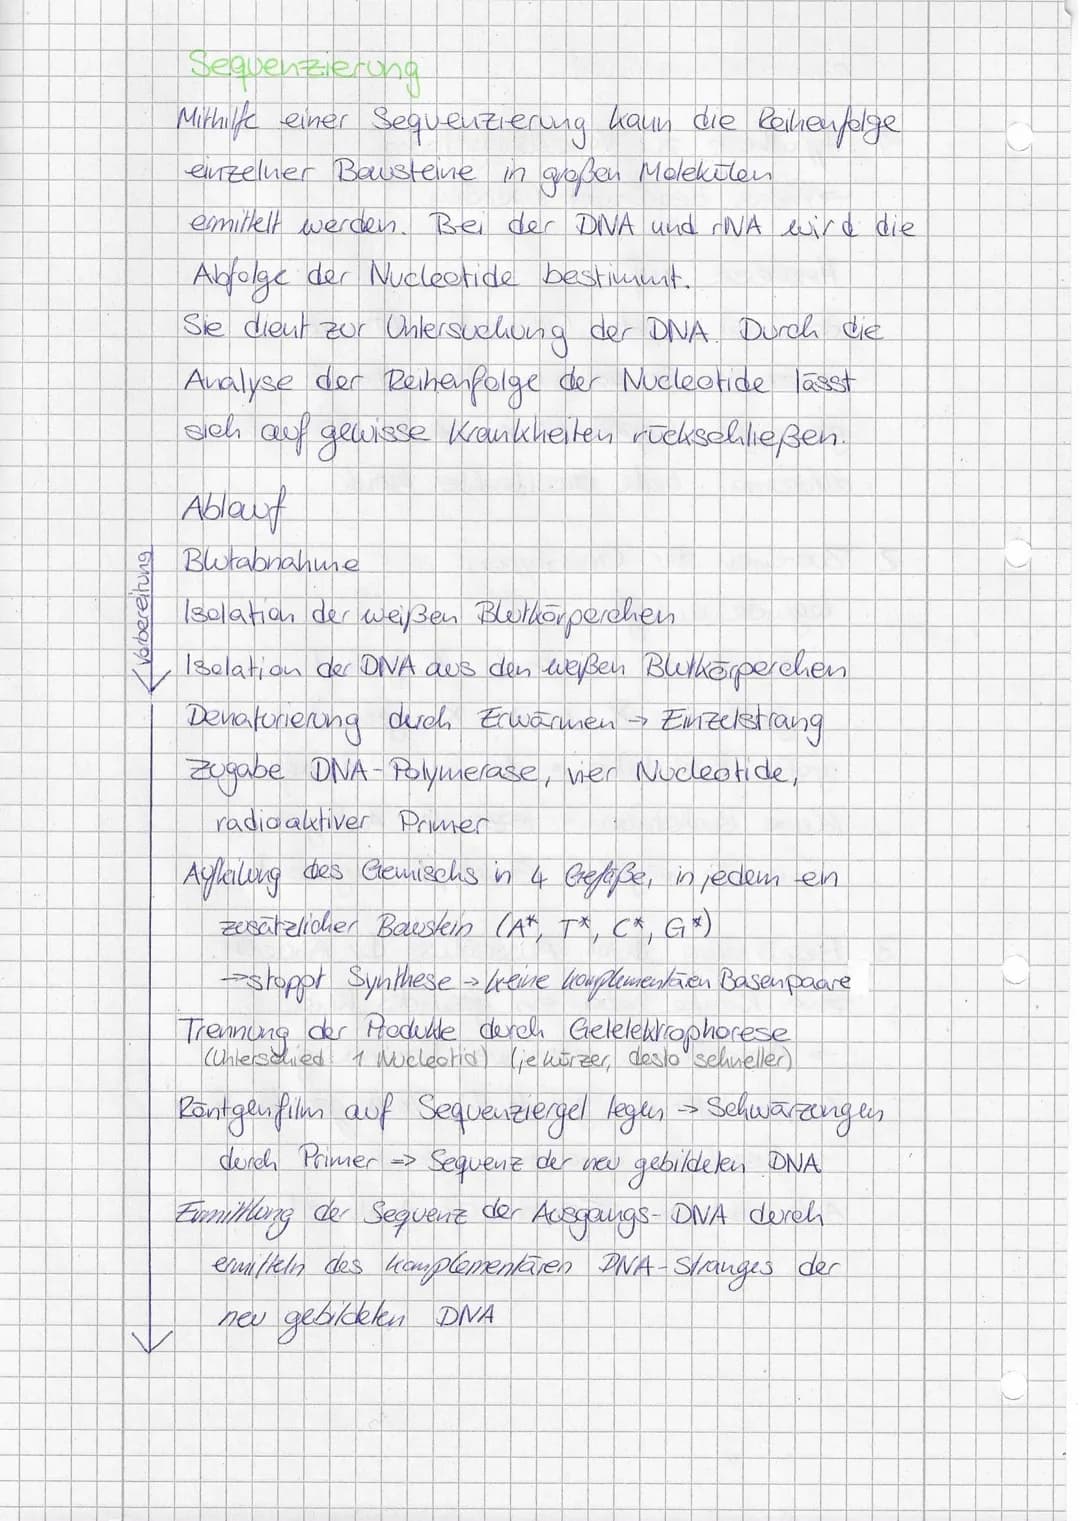 Sequenzierung
Mithilfe einer Sequenzierung kann die Reihenfolge
einzelner Bausteine in großen Molekülen
ermittelt werden. Bei der DNA und rNA wird die
Abfolge der Nucleotide bestimmt.
Sie dient zur Untersuchung der DNA. Durch die
Analyse der Reihenfolge der Nucleotide lässt
sich auf gewisse Krankheiten rückschließen.
Ablauf
Vorbereitung
Blutabnahme
Isolation der weißen Blutkörperchen
Isolation der DNA aus den weißen Blutkörperchen
Denaturierung durch Erwärmen → Einzelstrang
Zugabe DNA-Polymerase, vier Nucleotide,
radioaktiver Primer
Aufteilung des Gemischs in 4 Gefäße, in jedem ein
zusätzlicher Baustein (A*, T*, C*, G*)
→ stoppt Synthese → keine komplementären Basenpaare
Trennung der Produkte durch Gelelektrophorese
(Unterschied 1 Nucleotid) (je kürzer, desto schneller)
Röntgenfilm auf Sequenziergel legen → Schwärzungen
durch Primer => Sequenz der neu gebildeten DNA
Ermittlung der Sequenz der Ausgangs-DNA durch
ermitteln des komplementären DNA-Stranges der
neu gebildeten DNA